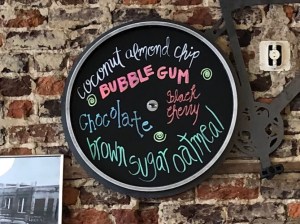 coconut almond chip
BUBBLE GUM
chocolate
black
cherry
brown sugar oatmeal